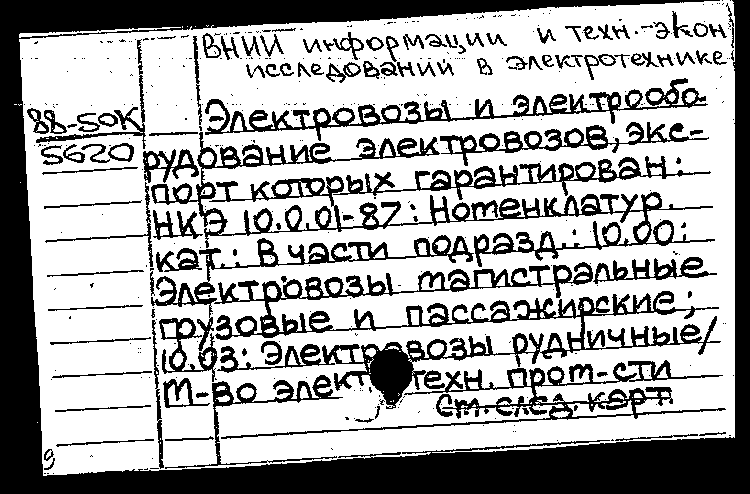 ВНИИ информации и техн.-экон
исследований в электротехнике
88-50К
5620
Электровозы и электрообо-
рудование электровозов, экс-
порт которых гарантирован:
НКЭ 10.0.01-87: Номенклатур.
кат.: В части подразд.: 10.00:
Электровозы магистральные
грузовые и пассажирские;
10.03: Электровозы рудничные/
М-во электротехн. пром-сти
См. след. карт.
9